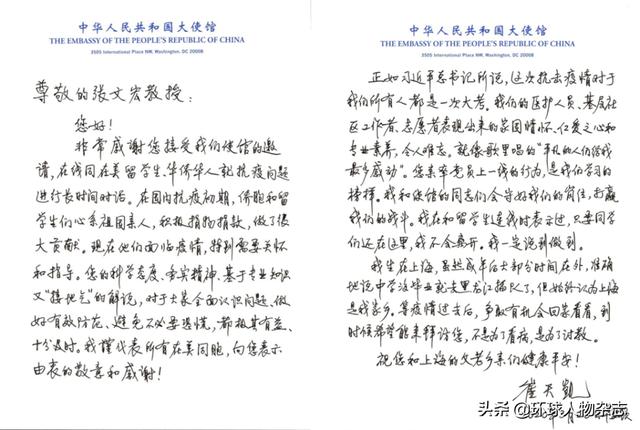 中华人民共和国大使馆
THE EMBASSY OF THE PEOPLE'S REPUBLIC OF CHINA
3505 International Place NW, Washington, DC 20008
尊敬的张文宏教授:
您好!
非常感谢您接受我们使馆的邀
请,在线同在美留学生、华侨华人就抗疫问题
进行长时间对话。在国内抗疫初期,侨胞和留
学生们心系祖国亲人,积极捐物捐款,做了很
大贡献。现在他们面临疫情,特别需要关怀
和指导。您的科学态度、务实精神、基于专业知识
又"接地气"的解说,对于大家全面认识问题、做
好有效防范、避免不必要恐慌,都极其有益、
十分及时。我谨代表所有在美同胞,向您表示
由衷的敬意和感谢!
中华人民共和国大使馆
THE EMBASSY OF THE PEOPLE'S REPUBLIC OF CHINA
3505 International Place NW, Washington, DC 20008
正如习近平总书记所说,这次抗击疫情对于
我们所有人都是一次大考。我们的医护人员、基层社
区工作者、志愿者表现出来的家国情怀、仁爱之心和
专业素养,令人难忘。就像歌里唱的"平凡的人们给我
最多感动"。您亲率党员上一线的行为,是我们学习的
榜样。我和使馆的同志们会守好我们的岗位,打赢
我们的战斗。我在和留学生连线时表示过,只要同学
们还在这里,我不会离开。我一定说到做到。
我生在上海,虽然成年后大部分时间在外,准确
地说中学没毕业就去黑龙江插队了,但始终认为上海
是我家乡。等疫情过去后,争取有机会回家看看,到
时候希望能来拜访您,不是为了看病,是为了讨教。
祝您和上海的父老乡亲们健康平安!
崔天凯
头条 @环球人物杂志